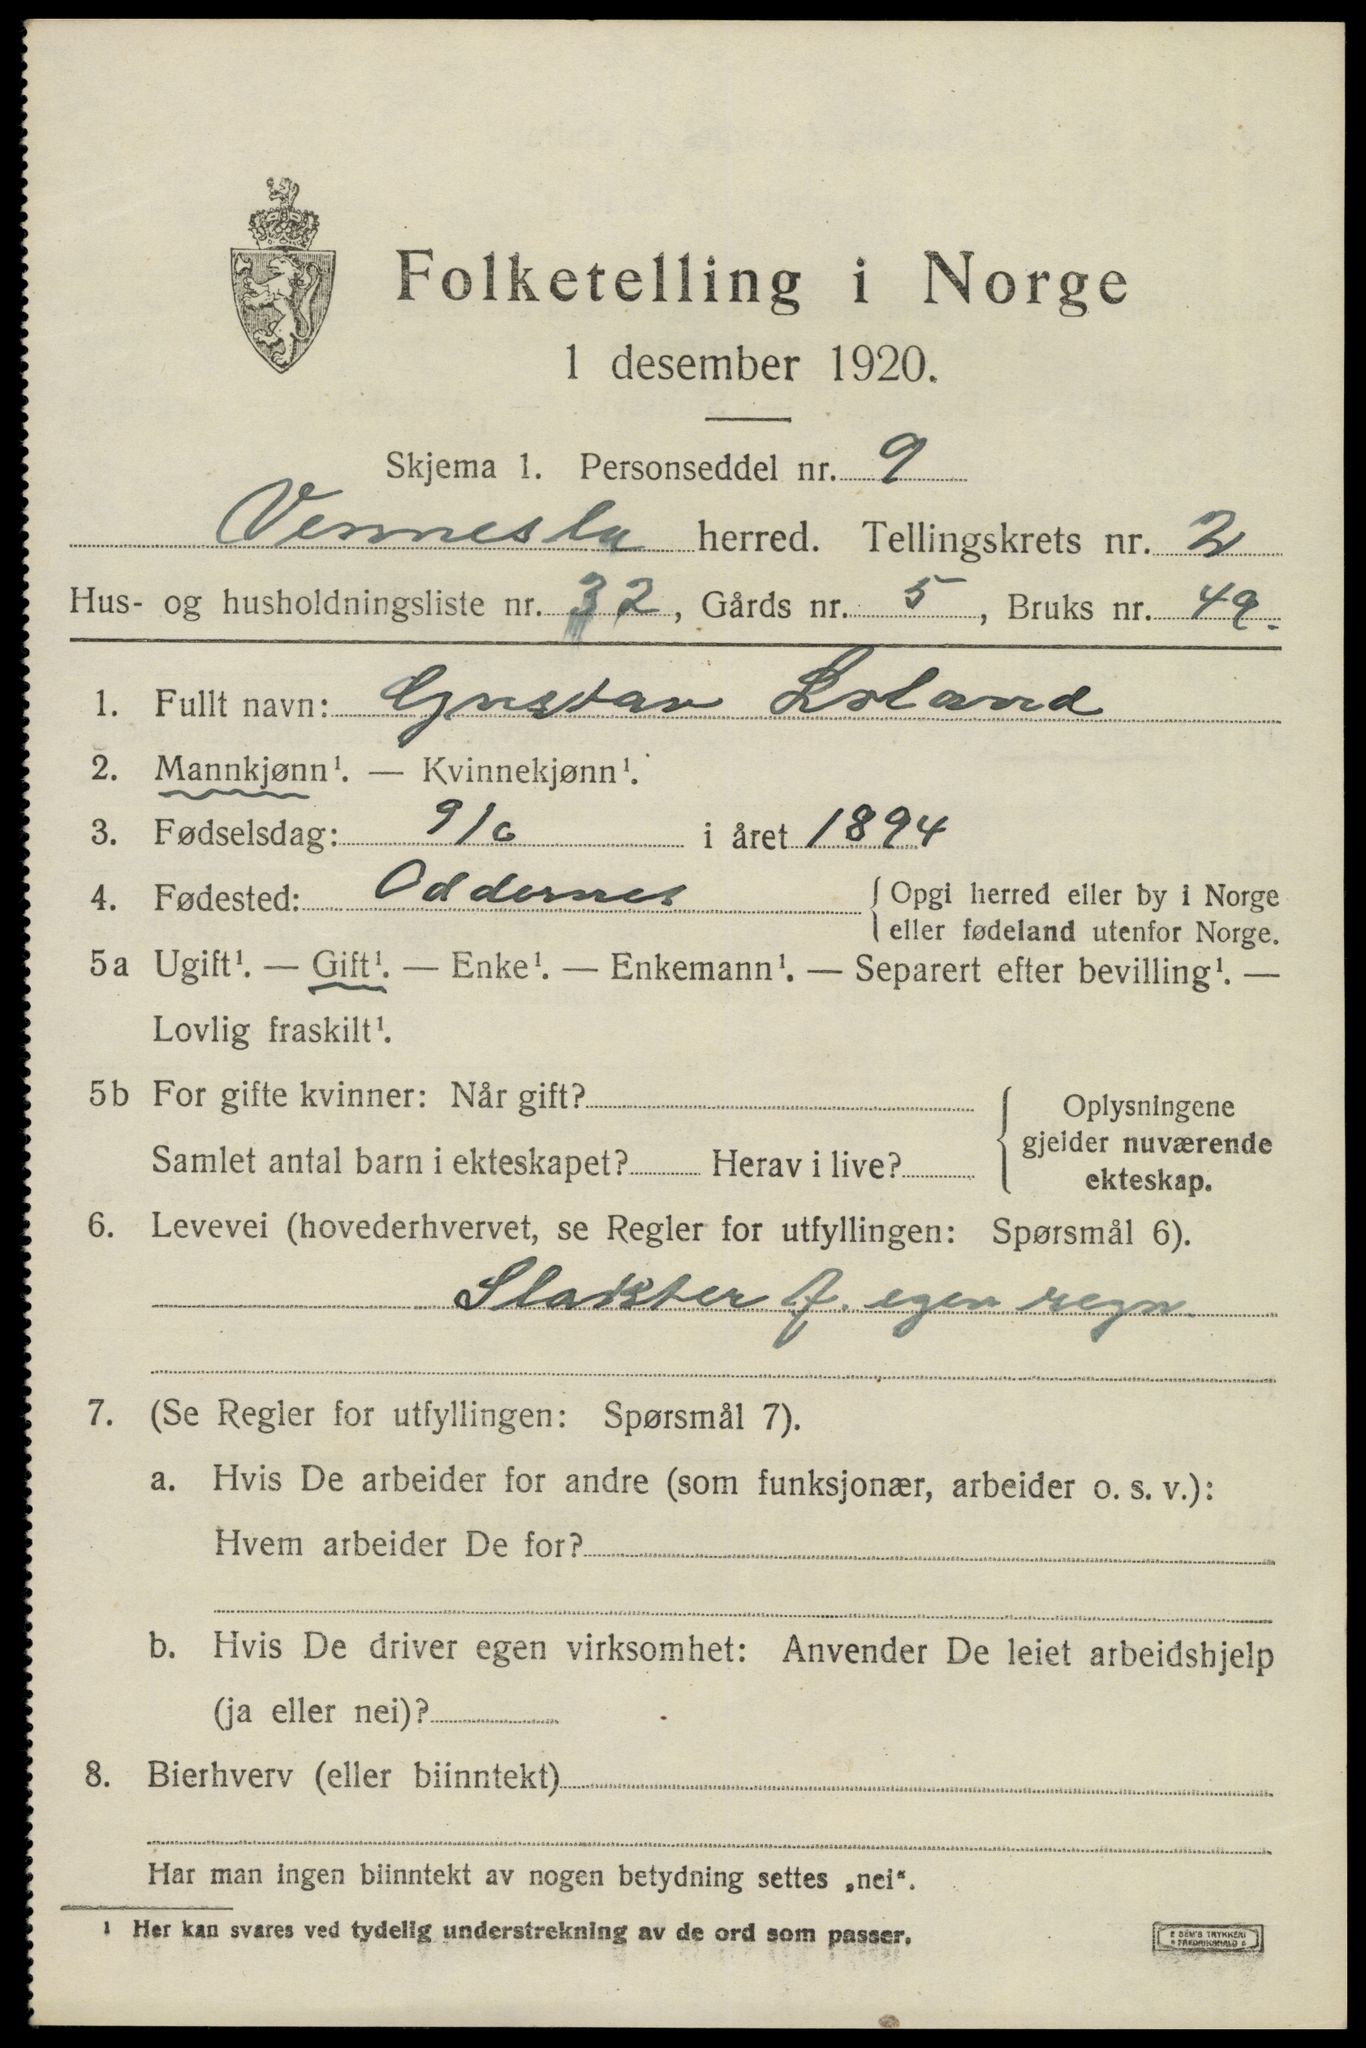 Folketelling i Norge
1 desember 1920.
Skjema 1. Personseddel nr. 9
Vennesla herred. Tellingskrets nr. 2
Hus- og husholdningsliste nr. 32, Gårds nr. 5, Bruks nr. 49.
1. Fullt navn: Gustav
2. Mannkjønn¹. — Kvinnekjønn¹.
3. Fødselsdag: 9/6 i året 1894
4. Fødested: Oddernes { Opgi herred eller by i Norge
eller fødeland utenfor Norge.
5a Ugift¹. — Gift¹. — Enke¹. — Enkemann¹. — Separert efter bevilling¹. —
Lovlig fraskilt¹.
5b For gifte kvinner: Når gift?
Samlet antal barn i ekteskapet? Herav i live?
{ Oplysningene
gjelder nuværende
ekteskap.
6. Levevei (hovederhvervet, se Regler for utfyllingen: Spørsmål 6).
Slakter f. egen regn.
7. (Se Regler for utfyllingen: Spørsmål 7).
a. Hvis De arbeider for andre (som funksjonær, arbeider o. s. v.):
Hvem arbeider De for?
b. Hvis De driver egen virksomhet: Anvender De leiet arbeidshjelp
(ja eller nei)?
8. Bierhverv (eller biinntekt)
Har man ingen biinntekt av nogen betydning settes „nei“.
¹ Her kan svares ved tydelig understrekning av de ord som passer.
SEM'S TRYKKERI
FREDRIKSHALD